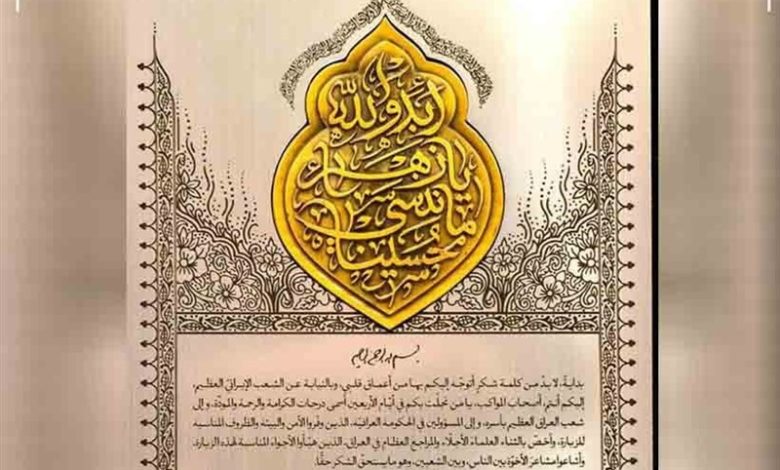 أبد والله
يا زهراء
ما ننسى
حسيناه
بسم الله الرحمن الرحيم
بدايةً، لا بدّ من كلمة شكرٍ أتوجّه إليكم بها من أعماق قلبي، وبالنيابة عن الشعب الإيرانيّ العظيم،
إليكم أنتم أصحاب المواكب، يا من تجلّت بكم في أيّام الأربعين أسمى درجات الكرامة والرحمة والمودّة، وإلى
شعب العراق العظيم بأسره، وإلى المسؤولين في الحكومة العراقيّة، الذين وفّروا الأمن والبيئة والظروف المناسبة
للزيارة، وأخصّ بالثناء العلماء الأجلّاء والمراجع العظام في العراق، الذين هيّأوا الأجواء المناسبة لهذه الزيارة،
وأشاعوا مشاعرَ الأخوّة بين الناس، وبين الشعبين، وهو ما يستحقّ الشكر حقًّا.